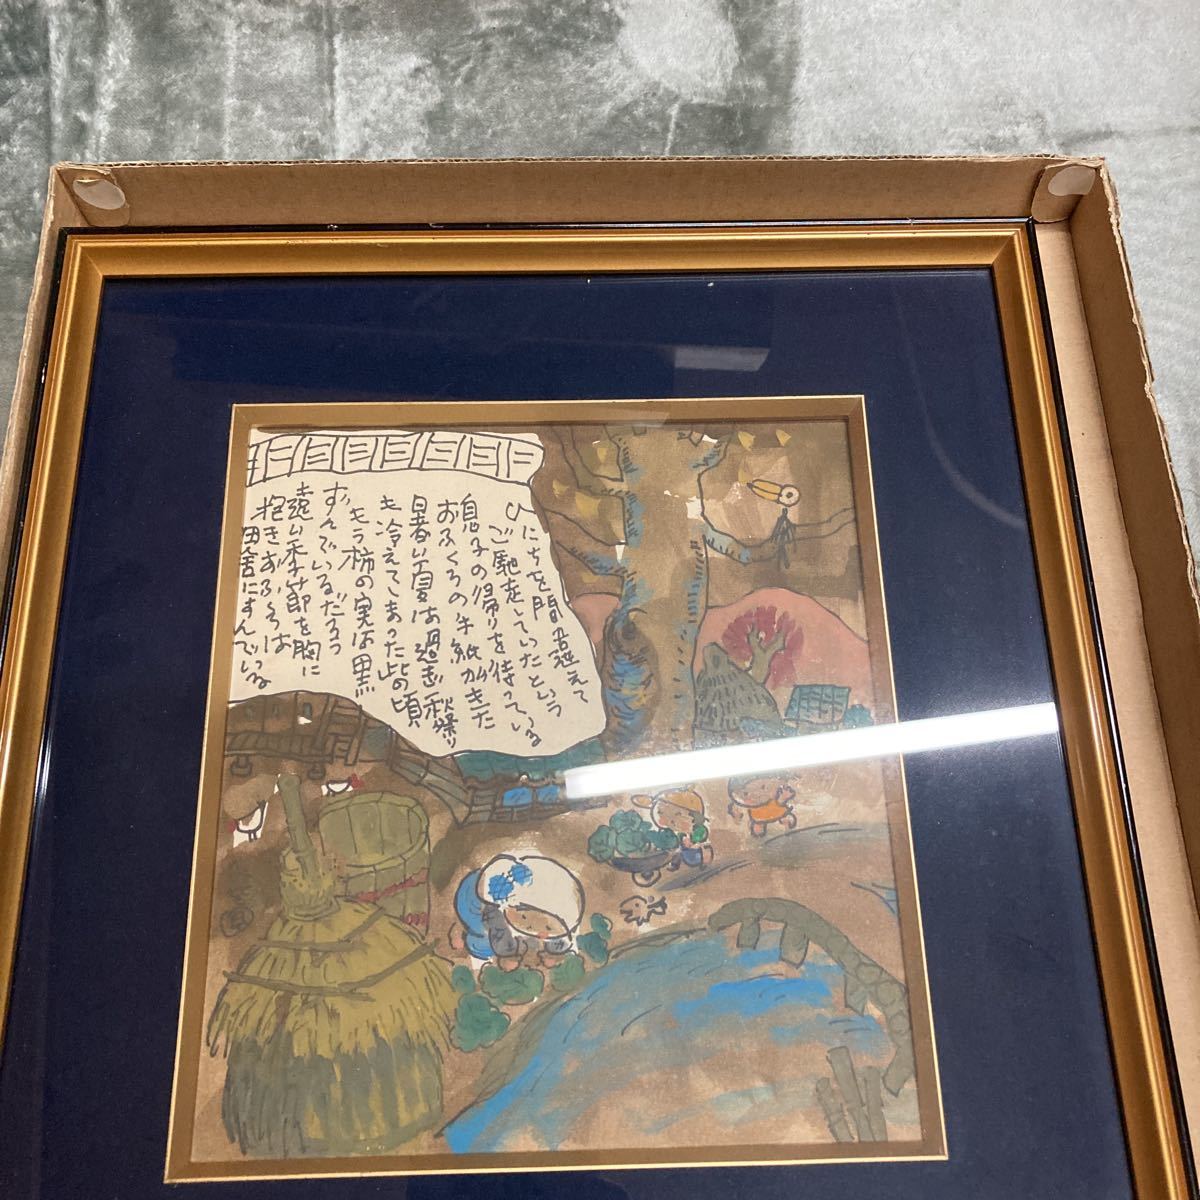 ひにちを間違えて
ご馳走していたという
息子の帰りを待っている
おふくろの手紙がきた
暑い夏は過ぎ秋祭り
も冷えてしまった此の頃
もう柿の実は黒
ずんでいるだろう
遠い季節を胸に
抱きおふくろは
田舎にすんでいる